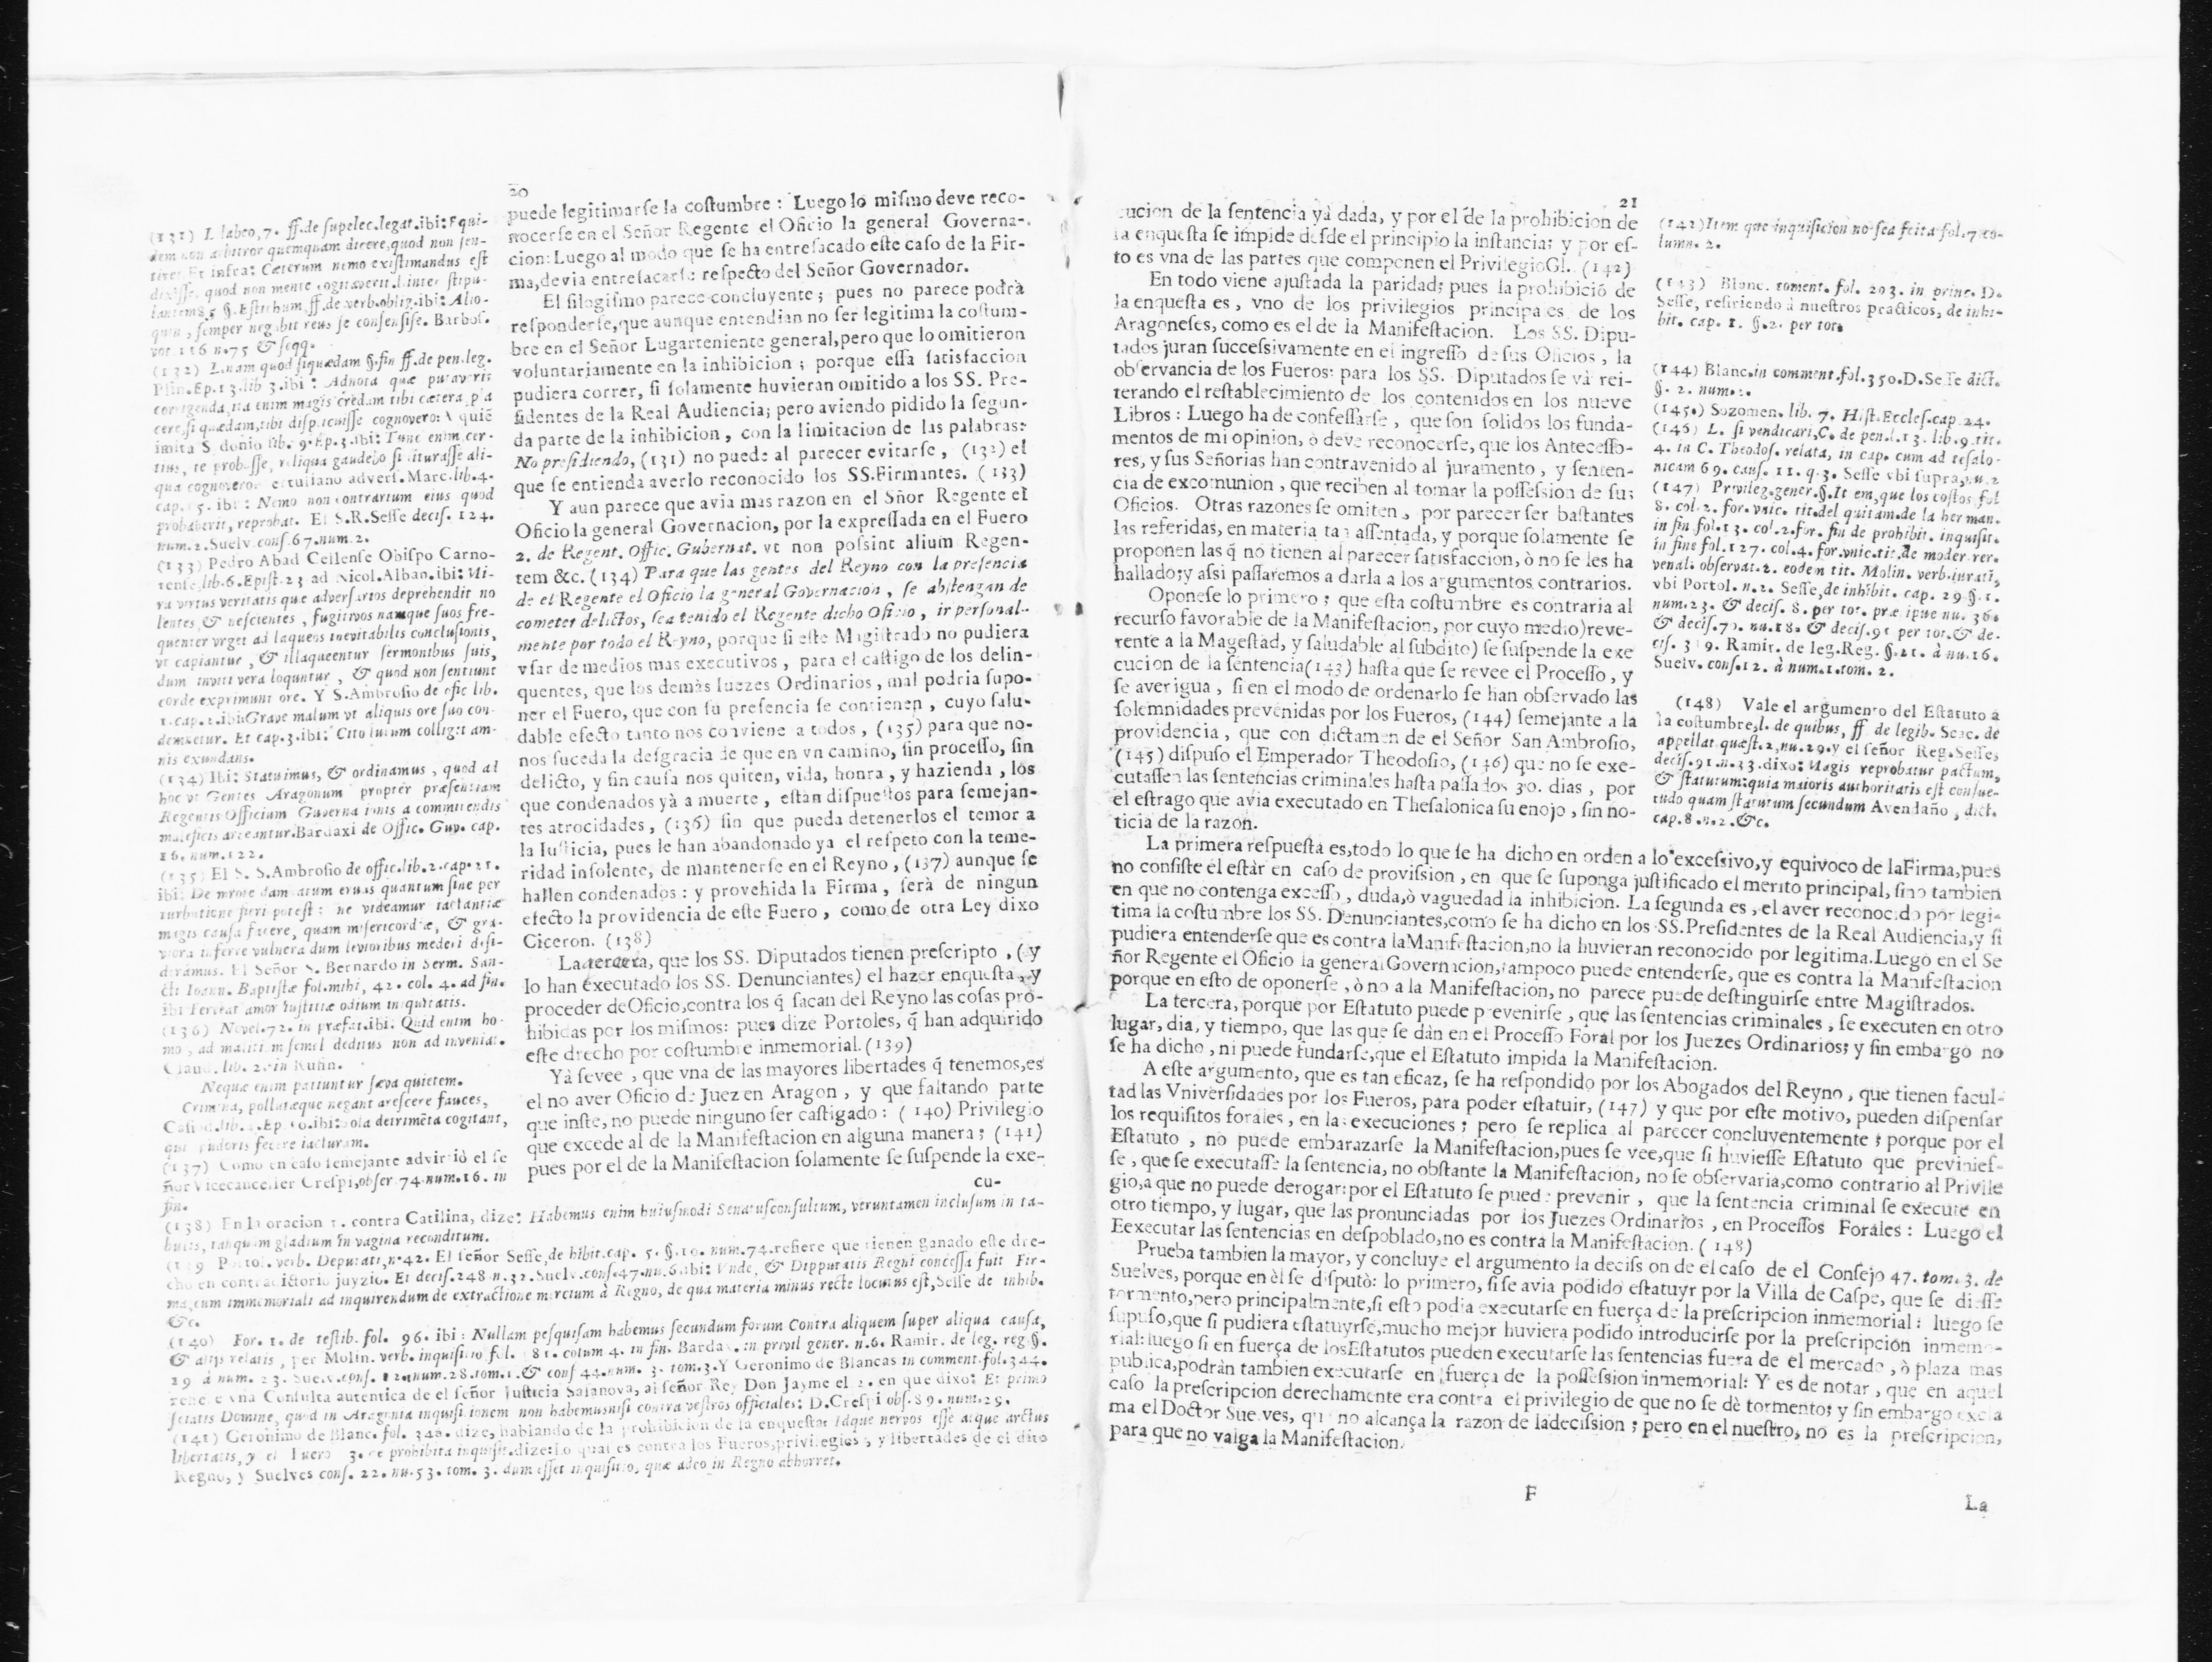 20
puede legitimarſe la coſtumbre : Luego lo miſmo deve reco-
nocerſe en el Señor Regente el Oficio la general Governa-
cion: Luego al modo que ſe ha entreſacado eſte caſo de la Fir-
ma,devia entreſacarſe reſpecto del Señor Governador.
El ſilogiſmo parece concluyente ; pues no parece podrà
reſponderſe,que aunque entendian no ſer legitima la coſtum-
bre en el Señor Lugarteniente general,pero que lo omitieron
voluntariamente en la inhibicion ; porque eſſa ſatisfaccion
pudiera correr, ſi ſolamente huvieran omitido a los SS. Pre-
ſidentes de la Real Audiencia; pero aviendo pidido la ſegun-
da parte de la inhibicion , con la limitacion de las palabras:
No preſidiendo, (131) no puede al parecer evitarſe , (132) el
que ſe entienda averlo reconocido los SS.Firmantes. (133)
Y aun parece que avia mas razon en el Sñor Regente el
Oficio la general Governacion, por la expreſſada en el Fuero
2. de Regent. Offic. Gubernat. vt non poſsint alium Regen-
tem &c. (134) Para que las gentes del Reyno con la preſencia
de el Regente el Oficio la general Governacion , ſe abſtengan de
cometer delictos, ſea tenido el Regente dicho Oficio , ir perſonal-
mente por todo el Reyno, porque ſi eſte Magiſtrado no pudiera
vſar de medios mas executivos , para el caſtigo de los delin-
quentes, que los demàs Iuezes Ordinarios , mal podria ſupo-
ner el Fuero, que con ſu preſencia ſe contienen , cuyo ſalu-
dable efecto tanto nos conviene a todos , (135) para que no
nos ſuceda la deſgracia de que en vn camino, ſin proceſſo, ſin
delicto, y ſin cauſa nos quiten, vida, honra , y hazienda , los
que condenados yà a muerte , eſtàn diſpueſtos para ſemejan-
tes atrocidades , (136) ſin que pueda detenerlos el temor a
la Iuſticia, pues le han abandonado ya el reſpeto con la teme-
ridad inſolente, de mantenerſe en el Reyno , (137) aunque ſe
hallen condenados : y provehida la Firma , ſerà de ningun
efecto la providencia de eſte Fuero , como de otra Ley dixo
Ciceron. (138)
La tercera, que los SS. Diputados tienen preſcripto , ( y
lo han executado los SS. Denunciantes) el hazer enqueſta , y
proceder de Oficio,contra los q̃ ſacan del Reyno las coſas pro-
hibidas por los miſmos: pues dize Portoles, q̃ han adquirido
eſte drecho por coſtumbre inmemorial. (139)
Yà ſe vee , que vna de las mayores libertades q̃ tenemos,es
el no aver Oficio de Juez en Aragon , y que faltando parte
que inſte, no puede ninguno ſer caſtigado : ( 140) Privilegio
que excede al de la Manifeſtacion en alguna manera; (141)
pues por el de la Manifeſtacion ſolamente ſe ſuſpende la exe-
cu-
(131) L labeo,7. ff.de ſupelec.legat.ibi: Equi-
dem non arbitror quemquam dicere,quod non ſen-
tiret Et infra: Cæterum nemo exiſtimandus eſt
dixiſſe, quod non mente cogitaverit.l.inter ſtipu-
lantem 83 §.Eſtichum ff.de verb.oblig.ibi: Alio-
quin , ſemper negabit reus ſe conſenſiſſe. Barboſ.
vot.116 n.75 & ſeqq.
(132) L.nam quod ſiquædam §.fin ff.de pen.leg.
Plin.Ep.13.lib 3.ibi : Adnota quæ putaveris
corrigenda,ita enim magis credam tibi cætera pla
cere,ſi quædam,tibi diſplicuiſſe cognovero: A quiẽ
imita S donio lib. 9.Ep.3.ibi: Tunc enim cer-
tius, te probaſſe, reliqua gaudebo ſi lituraſſe ali-
qua cognovero. Tertuliano adverſ. Marc.lib.4.
cap. 5. ibi : Nemo non contrarium eius quod
probaberit, reprobat. El S.R.Seſſe deciſ. 124.
num.2.Suelv.conſ.67.num.2.
(133) Pedro Abad Cellenſe Obiſpo Carno-
tenſe,lib.6.Epiſt.23 ad Nicol.Alban.ibi: Mi-
ra virtus veritatis que adverſarios deprehendit no
lentes , & neſcientes , fugitivos namque ſuos fre-
quenter vrget ad laqueos inevitabilis concluſionis,
vt capiantur , & illaqueentur ſermonibus ſuis,
dum inviti vera loquntur , & quod non ſentiunt
corde exprimunt ore. Y S.Ambroſio de ofic lib.
1.cap.2.ibi:Grave malum vt aliquis ore ſuo con-
demnetur. Et cap.3.ibi: Cito lutum colligit am-
nis exundans.
(134) Ibi: Statuimus, & ordinamus , quod ad
hoc vt Gentes Aragonum propter præſentiam
Regentis Officium Guvernationis a committendis
maleficis arceantur.Bardaxi de Offic. Guv. cap.
16. num.122.
(135) El S. S.Ambroſio de offic.lib.2.cap.21.
ibi: De morte damnatum eruas quantum ſine per
turbatione fieri poteſt : ne videamur iactantiæ
magis cauſa facere, quam miſericordiæ, & gra-
viora inferre vulnera dum levioribus mederi deſi-
deramus. El Señor S. Bernardo in Serm. San-
cti Ioann. Baptiſtæ fol.mihi, 42. col. 4. ad fin.
ibi Ferveat amor Iuſtitiæ odium iniquitatis.
(136) Novel.72. in præfat.ibi: Quid enim ho-
mo , ad malitiam ſemel deditus non ad inveniat.
Claud. lib. 2. in Rufin.
Nequæ enim patiuntur ſæva quietem.
Crimina, pollutæque negant areſcere fauces,
Caſiod.lib.1.Ep.10.ibi: ſola detrimẽta cogitant,
qui pudoris fecere iacturam.
(137) Como en caſo ſemejante advirtiò el ſe
ñor Vicecanceller Creſpi,obſer 74.num.16. in
fin.
(138) En la oracion 1. contra Catilina, dize: Habemus enim huiuſmodi Senatuſconſultum, veruntamen incluſum in ta-
bulis, tanquam gladium in vagina reconditum.
(139 Portol. verb. Deputati, nº42. El ſeñor Seſſe,de hibit.cap. 5. §.10. num.74.refiere que tienen ganado eſte dre-
cho en contradictorio juyzio. Et deciſ.248 n.32.Suelv.conſ.47.nu.6.ibi: Vnde, & Dipputatis Regni conceſſa fuit Fir-
ma,cum immemoriali ad inquirendum de extractione mercium à Regno, de qua materia minus recte locutus eſt,Seſſe de inhib.
&c.
(140) For. 1. de teſtib. fol. 96. ibi : Nullam peſquiſam habemus ſecundum forum Contra aliquem ſuper aliqua cauſa,
& alijs relatis , per Molin. verb. inquiſitio fol. 181. colum 4. in fin. Bardax. in privil gener. n.6. Ramir. de leg. reg.§.
29 à num. 23. Suelv.conſ. 12.num.28.tom.1.& conſ 44.num. 3. tom.3.Y Geronimo de Blancas in comment.fol.344.
refiere vna Conſulta autentica de el ſeñor Juſticia Salanova, al ſeñor Rey Don Jayme el 2. en que dixo: Et primo
ſciatis Domine, quod in Aragonia inquiſitionem non habemusniſi contra veſtros officiales: D.Creſpi obſ.89.num.29.
(141) Geronimo de Blanc. fol. 348. dize, hablando de la prohibicion de la enqueſta: Idque nervos eſſe atque arctus
libertatis, y el Fuero 3. de prohibita inquiſit.dize:Lo qual es contra los Fueros,privilegios , y libertades de el dito
Regno, y Suelves conſ. 22. nu.53. tom. 3. dum eſſet inquiſitio, quæ adeo in Regno abhorret.
21
cucion de la ſentencia yà dada, y por el de la prohibicion de
la enqueſta ſe impide deſde el principio la inſtancia; y por eſ-
to es vna de las partes que componen el PrivilegioGl. (142)
En todo viene ajuſtada la paridad; pues la prohibiciõ de
la enqueſta es , vno de los privilegios principales de los
Aragoneſes, como es el de la Manifeſtacion. Los SS. Dipu-
tados juran ſucceſsivamente en el ingreſſo de ſus Oficios , la
obſervancia de los Fueros: para los SS. Diputados ſe và rei-
terando el reſtablecimiento de los contenidos en los nueve
Libros : Luego ha de confeſſarſe , que ſon ſolidos los funda-
mentos de mi opinion, ò deve reconocerſe, que los Anteceſſo-
res, y ſus Señorias han contravenido al juramento , y ſenten-
cia de excomunion , que reciben al tomar la poſſeſsion de ſus
Oficios. Otras razones ſe omiten , por parecer ſer baſtantes
las referidas, en materia tan aſſentada, y porque ſolamente ſe
proponen las q̃ no tienen al parecer ſatisfaccion, ò no ſe les ha
hallado;y aſsi paſſaremos a darla a los argumentos contrarios.
Oponeſe lo primero ; que eſta coſtumbre es contraria al
recurſo favorable de la Manifeſtacion, por cuyo medio)reve-
rente a la Mageſtad, y ſaludable al ſubdito) ſe ſuſpende la exe
cucion de la ſentencia(143) haſta que ſe revee el Proceſſo , y
ſe averigua , ſi en el modo de ordenarlo ſe han obſervado las
ſolemnidades prevenidas por los Fueros, (144) ſemejante a la
providencia , que con dictamen de el Señor San Ambroſio,
(145) diſpuſo el Emperador Theodoſio, (146) que no ſe exe-
cutaſſen las ſentencias criminales haſta paſſados 30. dias , por
el eſtrago que avia executado en Theſalonica ſu enojo , ſin no-
ticia de la razon.
La primera reſpueſta es,todo lo que ſe ha dicho en orden a lo exceſsivo,y equivoco de laFirma,pues
no conſiſte el eſtàr en caſo de proviſsion , en que ſe ſuponga juſtificado el merito principal, ſino tambien
en que no contenga exceſſo , duda,ò vaguedad la inhibicion. La ſegunda es , el aver reconocido por legi-
tima la coſtumbre los SS. Denunciantes,como ſe ha dicho en los SS.Preſidentes de la Real Audiencia,y ſi
pudiera entenderſe que es contra laManifeſtacion,no la huvieran reconocido por legitima.Luego en el Se
ñor Regente el Oficio la general Governacion,tampoco puede entenderſe, que es contra la Manifeſtacion
porque en eſto de oponerſe , ò no a la Manifeſtacion, no parece puede deſtinguirſe entre Magiſtrados.
La tercera, porque por Eſtatuto puede prevenirſe , que las ſentencias criminales , ſe executen en otro
lugar, dia, y tiempo, que las que ſe dàn en el Proceſſo Foral por los Juezes Ordinarios; y ſin embargo no
ſe ha dicho , ni puede fundarſe,que el Eſtatuto impida la Manifeſtacion.
A eſte argumento, que es tan eficaz, ſe ha reſpondido por los Abogados del Reyno , que tienen facul-
tad las Vniverſidades por los Fueros, para poder eſtatuir, (147) y que por eſte motivo, pueden diſpenſar
los requiſitos forales , en las execuciones ; pero ſe replica al parecer concluyentemente ; porque por el
Eſtatuto , no puede embarazarſe la Manifeſtacion,pues ſe vee,que ſi huvieſſe Eſtatuto que previnieſ-
ſe , que ſe executaſſe la ſentencia, no obſtante la Manifeſtacion, no ſe obſervaria,como contrario al Privile
gio,a que no puede derogar:por el Eſtatuto ſe puede prevenir , que la ſentencia criminal ſe execute en
otro tiempo, y lugar, que las pronunciadas por los Juezes Ordinarios , en Proceſſos Forales : Luego el
Eexecutar las ſentencias en deſpoblado,no es contra la Manifeſtacion. ( 148)
Prueba tambien la mayor, y concluye el argumento la deciſsion de el caſo de el Conſejo 47. tom. 3. de
Suelves, porque en èl ſe diſputò: lo primero, ſi ſe avia podido eſtatuyr por la Villa de Caſpe, que ſe dieſſe
tormento,pero principalmente,ſi eſto podia executarſe en fuerça de la preſcripcion inmemorial : luego ſe
ſupuſo,que ſi pudiera eſtatuyrſe,mucho mejor huviera podido introducirſe por la preſcripcion inmemo-
rial:luego ſi en fuerça de losEſtatutos pueden executarſe las ſentencias fuera de el mercado , ò plaza mas
publica,podràn tambien executarſe en fuerça de la poſſeſsion inmemorial: Y es de notar , que en aquel
caſo la preſcripcion derechamente era contra el privilegio de que no ſe dè tormento; y ſin embargo excla
ma el Doctor Suelves, que no alcança la razon de ladeciſsion ; pero en el nueſtro, no es la preſcripcion,
para que no valga la Manifeſtacion.
F
La
(142)Item que inquiſicion no ſea feita fol.7 co-
lumn. 2.
(143) Blanc. coment. fol. 203. in princ. D.
Seſſe, refiriendo à nueſtros practicos, de inhi-
bit. cap. 1. §.2. per tot.
(144) Blanc.in comment.fol.350.D.Seſſe dict.
§. 2. num.
(145.) Sozomen. lib. 7. Hiſt.Eccleſ.cap 24.
(146) L. ſi vendicari,C. de pen.l.13. lib.9.tit.
4. in C. Theodoſ. relata, in cap. cum ad teſalo-
nicam 69. cauſ. 11. q.3. Seſſe vbi ſupra,n.2
(147) Privileg.gener.§.It em,que los coſtos fol
8. col.2. for.vnic. tit.del quitam.de la herman.
in fin.fol.13. col.2.for. fin de prohibit. inquiſit.
in fine fol.127. col.4. for.vnic.tit.de moder.rer.
venal. obſervat.2. eodem tit. Molin. verb.iurati,
vbi Portol. n.2. Seſſe,de inhibit. cap. 29.§.1.
num.23. & deciſ. 8. per tot. præcipue nu. 36.
& deciſ.70. nu.18. & deciſ.91 per tot.& de-
ciſ. 319. Ramir. de leg.Reg. §.21. à nu.16.
Suelv. conſ.12. à num.1.tom. 2.
(148) Vale el argumento del Eſtatuto a
la coſtumbre,l. de quibus, ff de legib. Scac. de
appellat quæſt.2,nu.29.y el ſeñor Reg.Seſſe,
deciſ.91.n.33.dixo: Magis reprobatur pactum,
& ſtatutum:quia maioris authoritatis eſt conſue-
tudo quam ſtatutum ſecundum Avendaño , dict.
cap.8.n.2.&c.